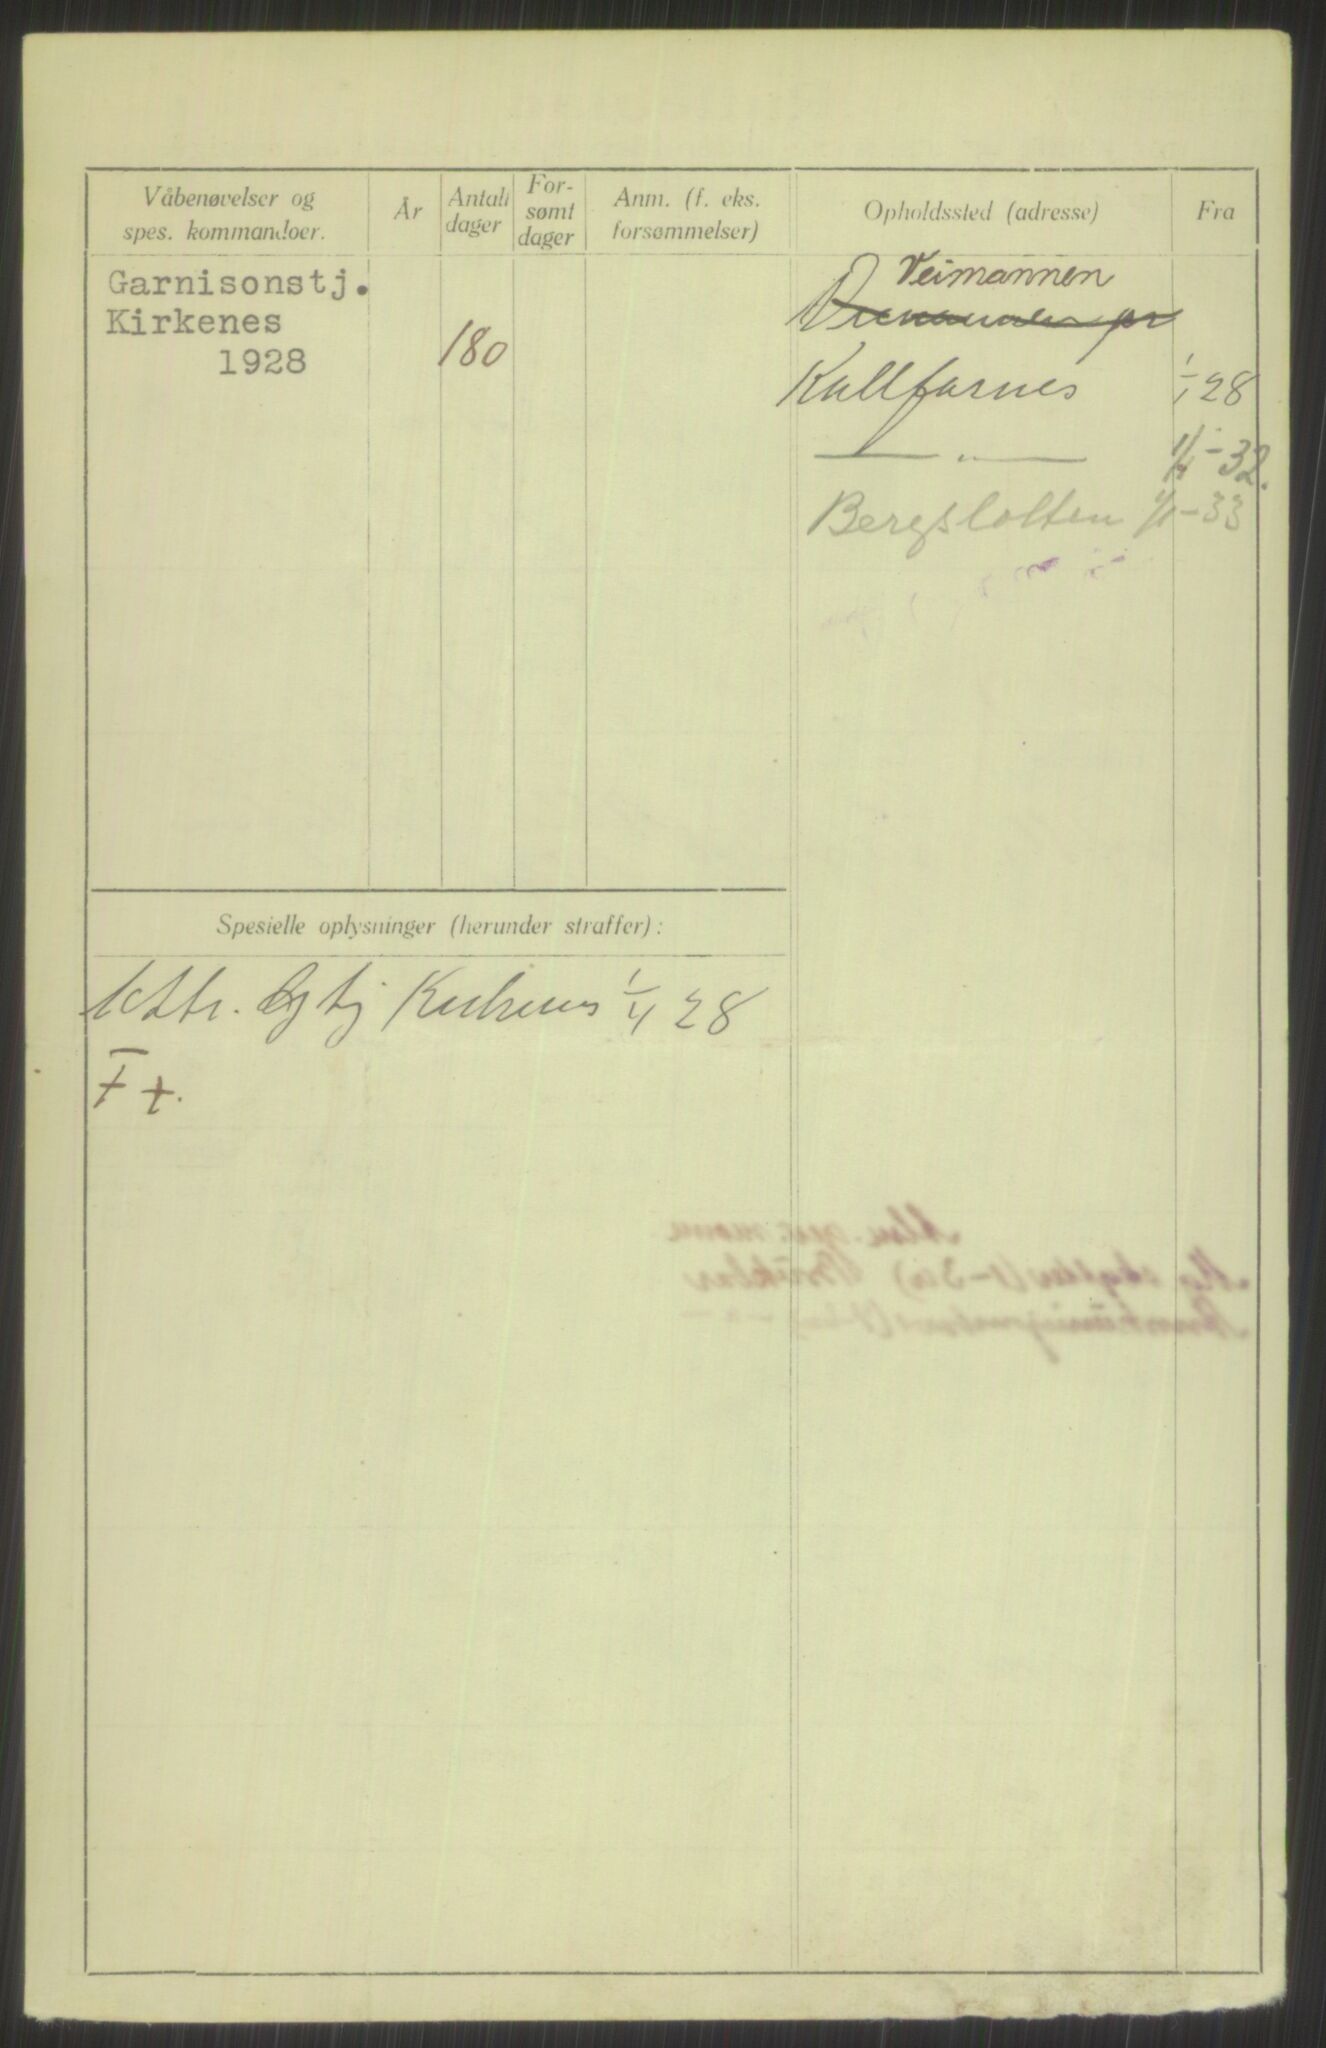 Våbenøvelser og
spes. kommandoer.
År
Antall
dager
For-
sømt
dager
Anm. (f. eks.
forsømmelser)
Opholdssted (adresse)
Fra
Garnisonstj.
Kirkenes
1928
180
Veimannen
Kallfarnes 1/1 28
— " — 1/1 - 32.
Bergslotten 1/1 - 33
Spesielle oplysninger (herunder straffer):
Kirkenes 1/4 28
F +.